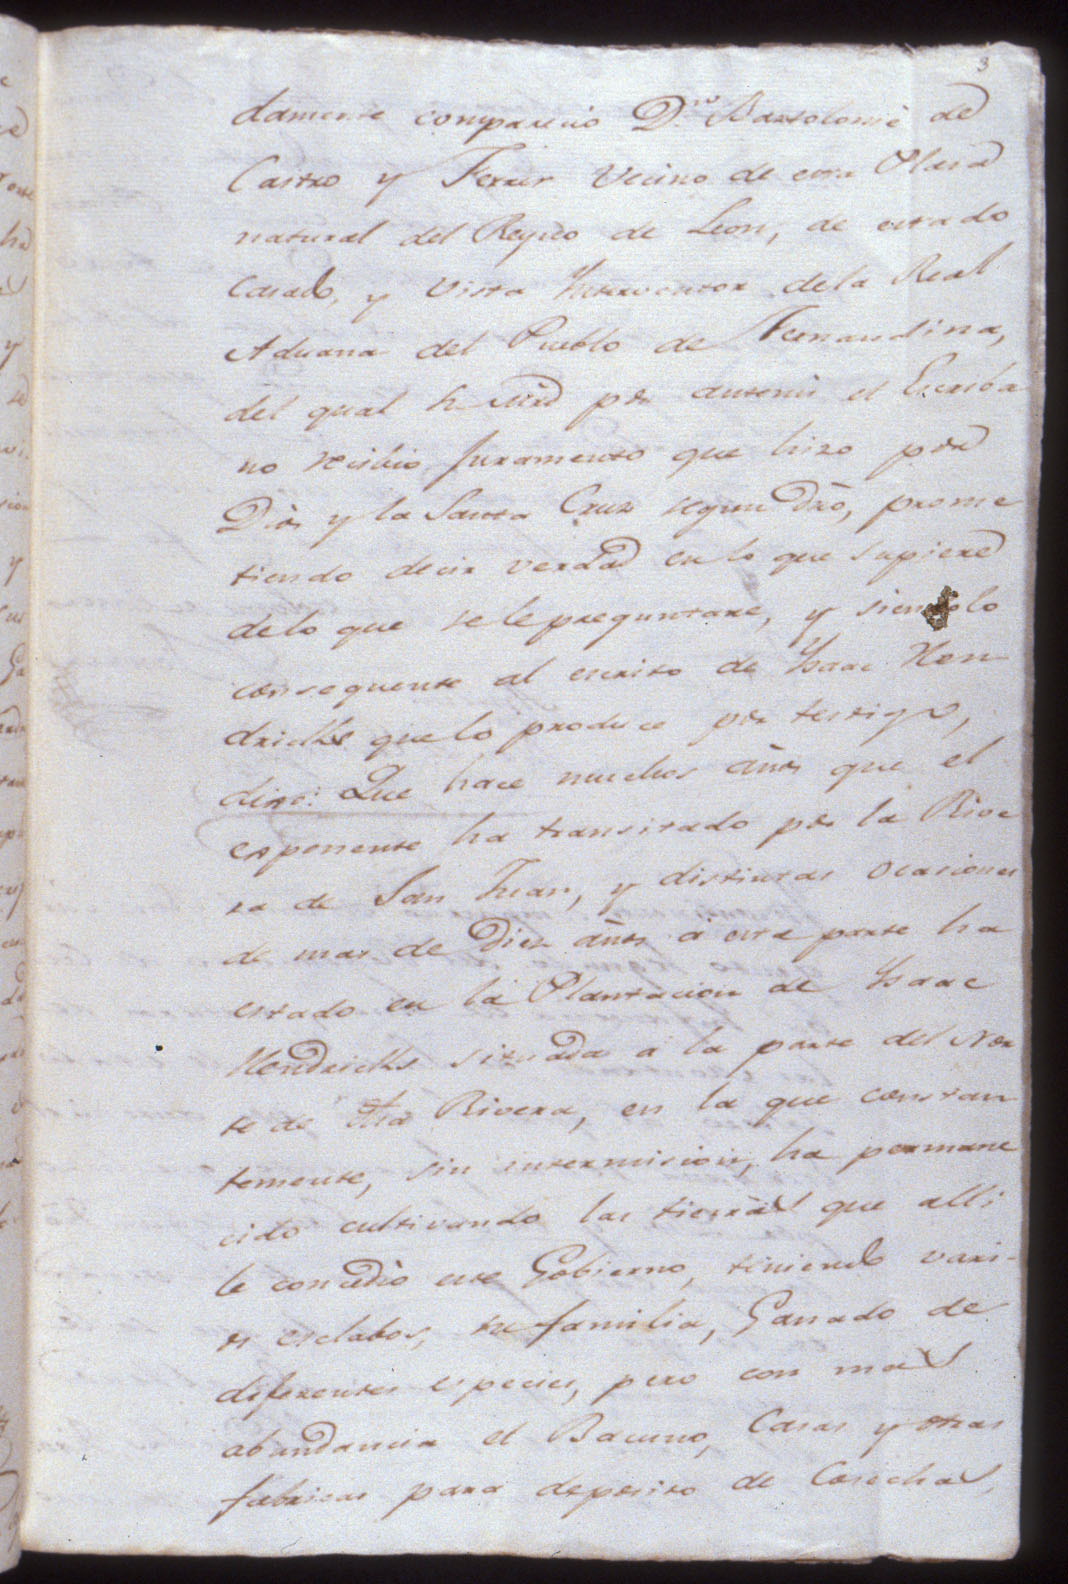 3
damente comparecio D.n Bartolomè de
Castro y Ferrer Vecino de esta Plaza
natural del Reyno de Leon, de estado
Casado, y Vista Interventor de la Real
Aduana del Pueblo de Fernandina,
del qual su sria por antemi el Escriba
no recibio Juramento que hizo por
Dios y la Santa Cruz segun dro, prome
tiendo decir verdad en lo que supiere
de lo que se le preguntare, y siendolo
consequente al escrito de Isaac Hen
dricks que lo produce por testigo,
dixo: Que hace muchos años que el
exponente ha transitado por la Rive
ra de San Juan, y distintas ocasiones
de mas de Diez años a esta parte ha
estado en la Plantacion de Isaac
Hendricks situada a la parte del Nor
te de dha Rivera, en la que constan
temente, sin intermision, ha permane
cido cultivando las tierras que alli
le concedio este Gobierno, teniendo vari-
os esclabos, su familia, Ganado de
diferentes especies, pero con mas
abundancia el Bacuno, Casas y otras
fabricas para deposito de Cosechas,